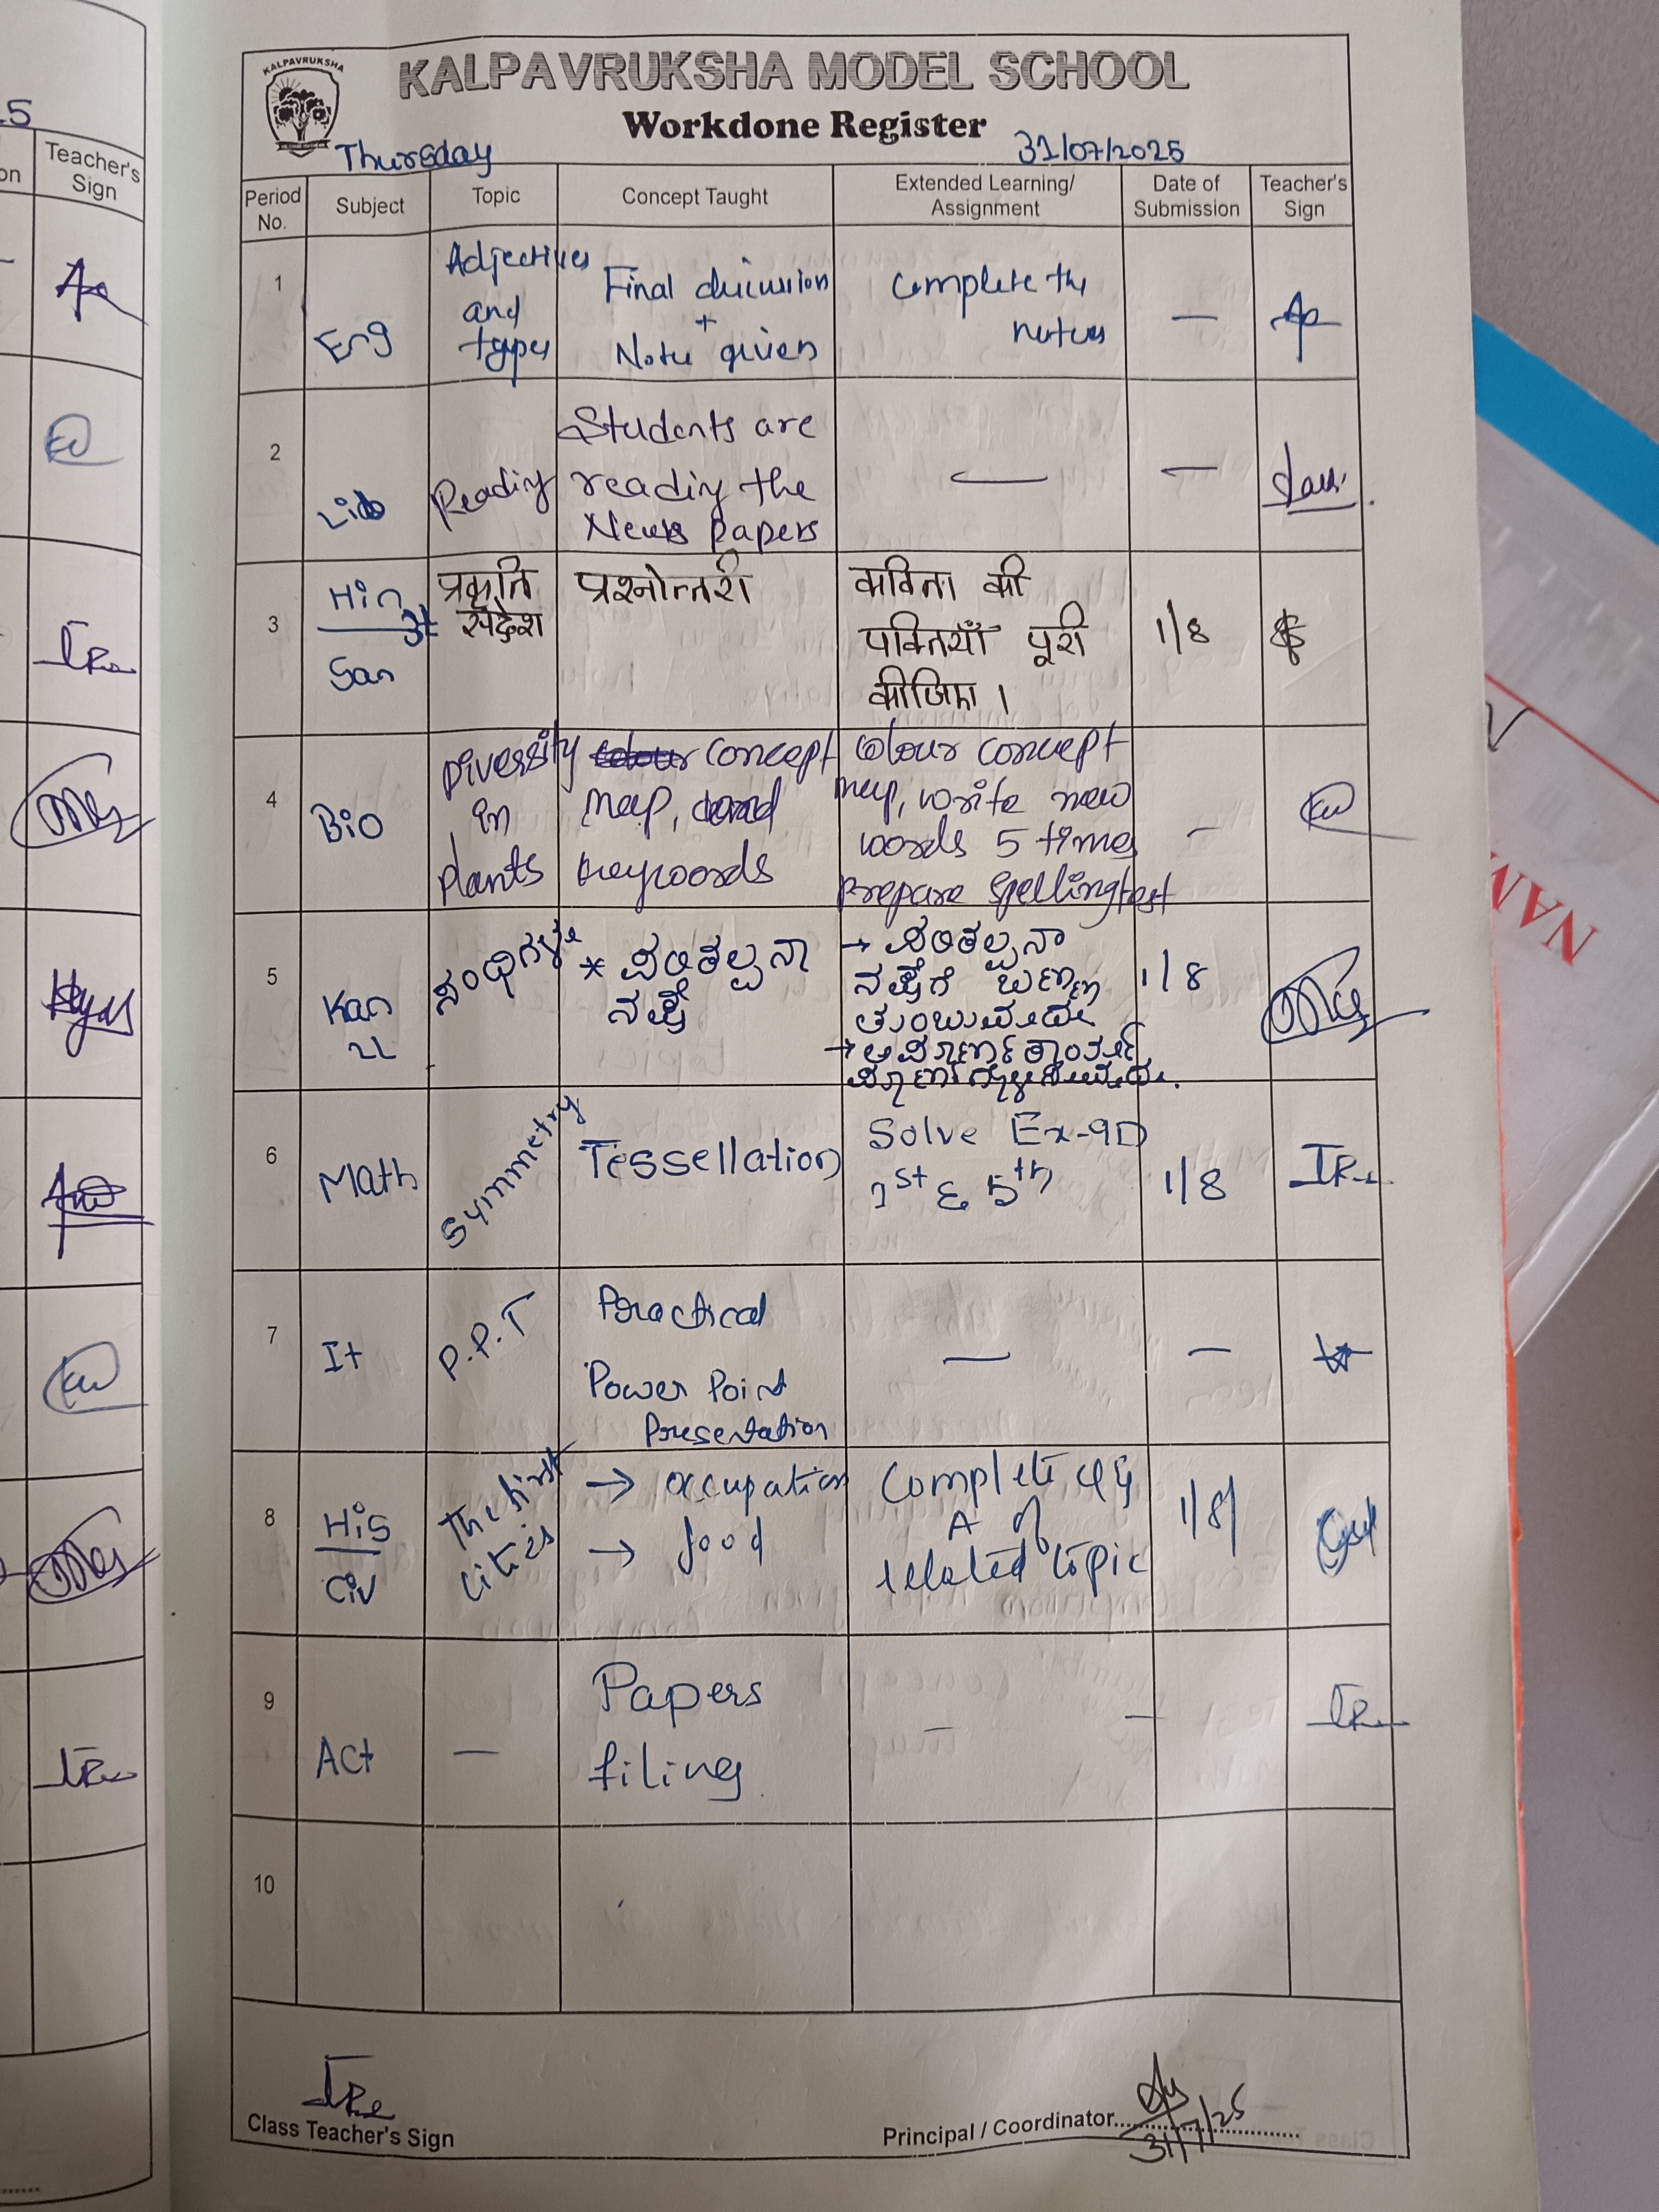 KALPAVRUKSHA
KALPAVRUKSHA MODEL SCHOOL
Workdone Register
Thursday 31/07/2025
Period No. Subject Topic Concept Taught Extended Learning/ Assignment Date of Submission Teacher's Sign
1 Eng Adjectives and types Final discussion + Note given Complete the notes —
2 Lib Reading Students are reading the News papers — —
3 Hin San प्रकृति संदेश प्रश्नोत्तरी कविता की पंक्तियाँ पूरी कीजिए । 1/8
4 Bio Diversity in plants concept map, keywords colour concept map, write new words 5 times prepare spelling test —
5 Kan 2L ಸಂಧಿಗಳು * ಪರಿಕಲ್ಪನಾ ನಕ್ಷೆ → ಪರಿಕಲ್ಪನಾ ನಕ್ಷೆಗೆ ಬಣ್ಣ ತುಂಬುವುದು → 1/8
6 Math Symmetry Tessellation Solve Ex-9D 1st & 5th 1/8
7 It P.P.T Practical Power Point Presentation — —
8 His Civ The first cities → occupation → food Complete Q & A of related topic 1/8/
9 Act — Papers filing — —
10
Class Teacher's Sign
Principal / Coordinator
31/7/25
on
Teacher's
Sign
NAM